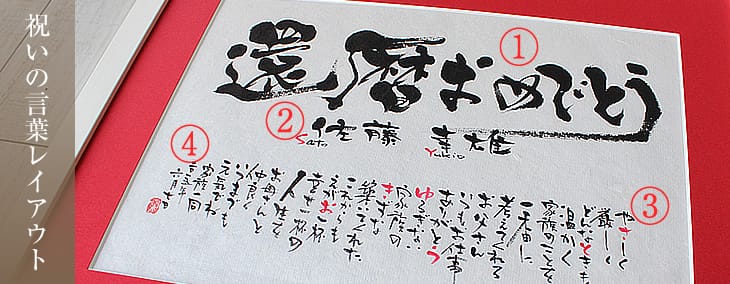 祝いの言葉レイアウト
①
還暦おめでとう
②
佐藤 幸雄
Sato Yukio
③
やさしく
厳しく
どんなときも
温かく
家族のことを
一番に
考えてくれる
お父さん
いつもお仕事
ありがとう
ゆるぎない
家族の
きずな
築いてくれた
これからも
えがお一杯
幸せ一杯の
人生を
お母さんと
仲良く
いつまでも
元気でね
④
家族一同
六月吉日